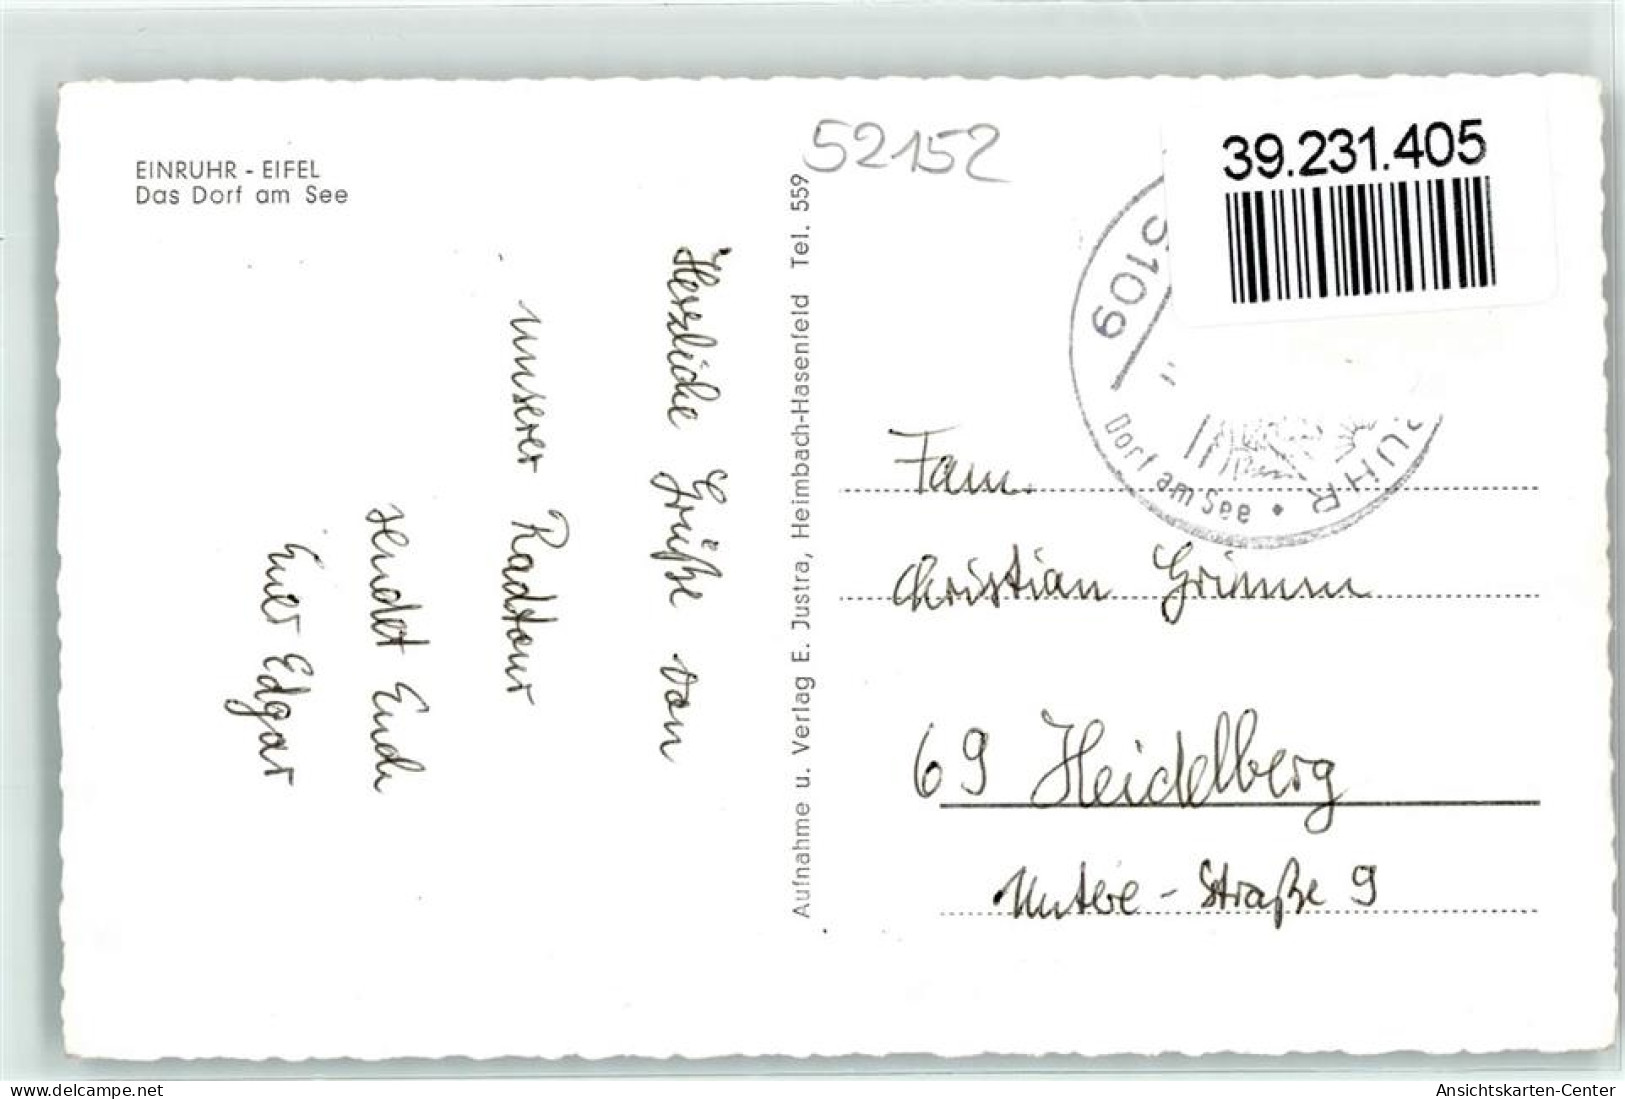 EINRUHR - EIFEL
Das Dorf am See
52152
39.231.405
5109
Dorf am See • RUHR
Herzliche Grüße von
unserer Radtour
sendet Euch
Euer Edgar
Aufnahme u. Verlag E. Justra, Heimbach-Hasenfeld Tel. 559
Fam.
Christian Grimm
69 Heidelberg
Untere-Straße 9
delcampe.net
Ansichtskarten-Center